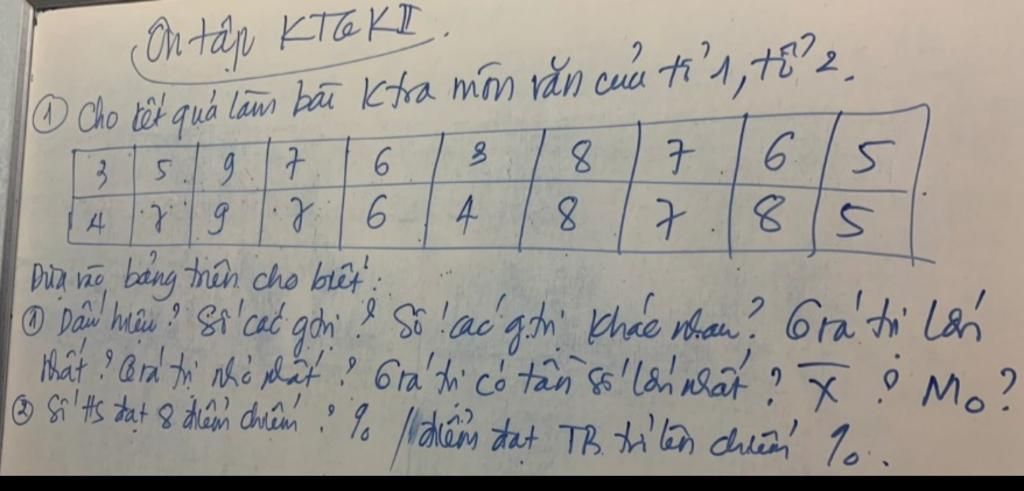 Ôn tập KTGKII.
① Cho kết quả làm bài Ktra môn văn của tổ 1, tổ 2.
3 5 9 7 6 3 8 7 6 5
4 7 9 7 6 4 8 7 8 5
Dựa vào bảng trên cho biết:
① Dấu hiệu? Số các gtrị? Số các g.trị khác nhau? Giá trị lớn
nhất? Giá trị nhỏ nhất? Giá trị có tần số lớn nhất? X̅? M₀?
② Số HS đạt 8 điểm chiếm ? % / điểm đạt TB trở lên chiếm %.